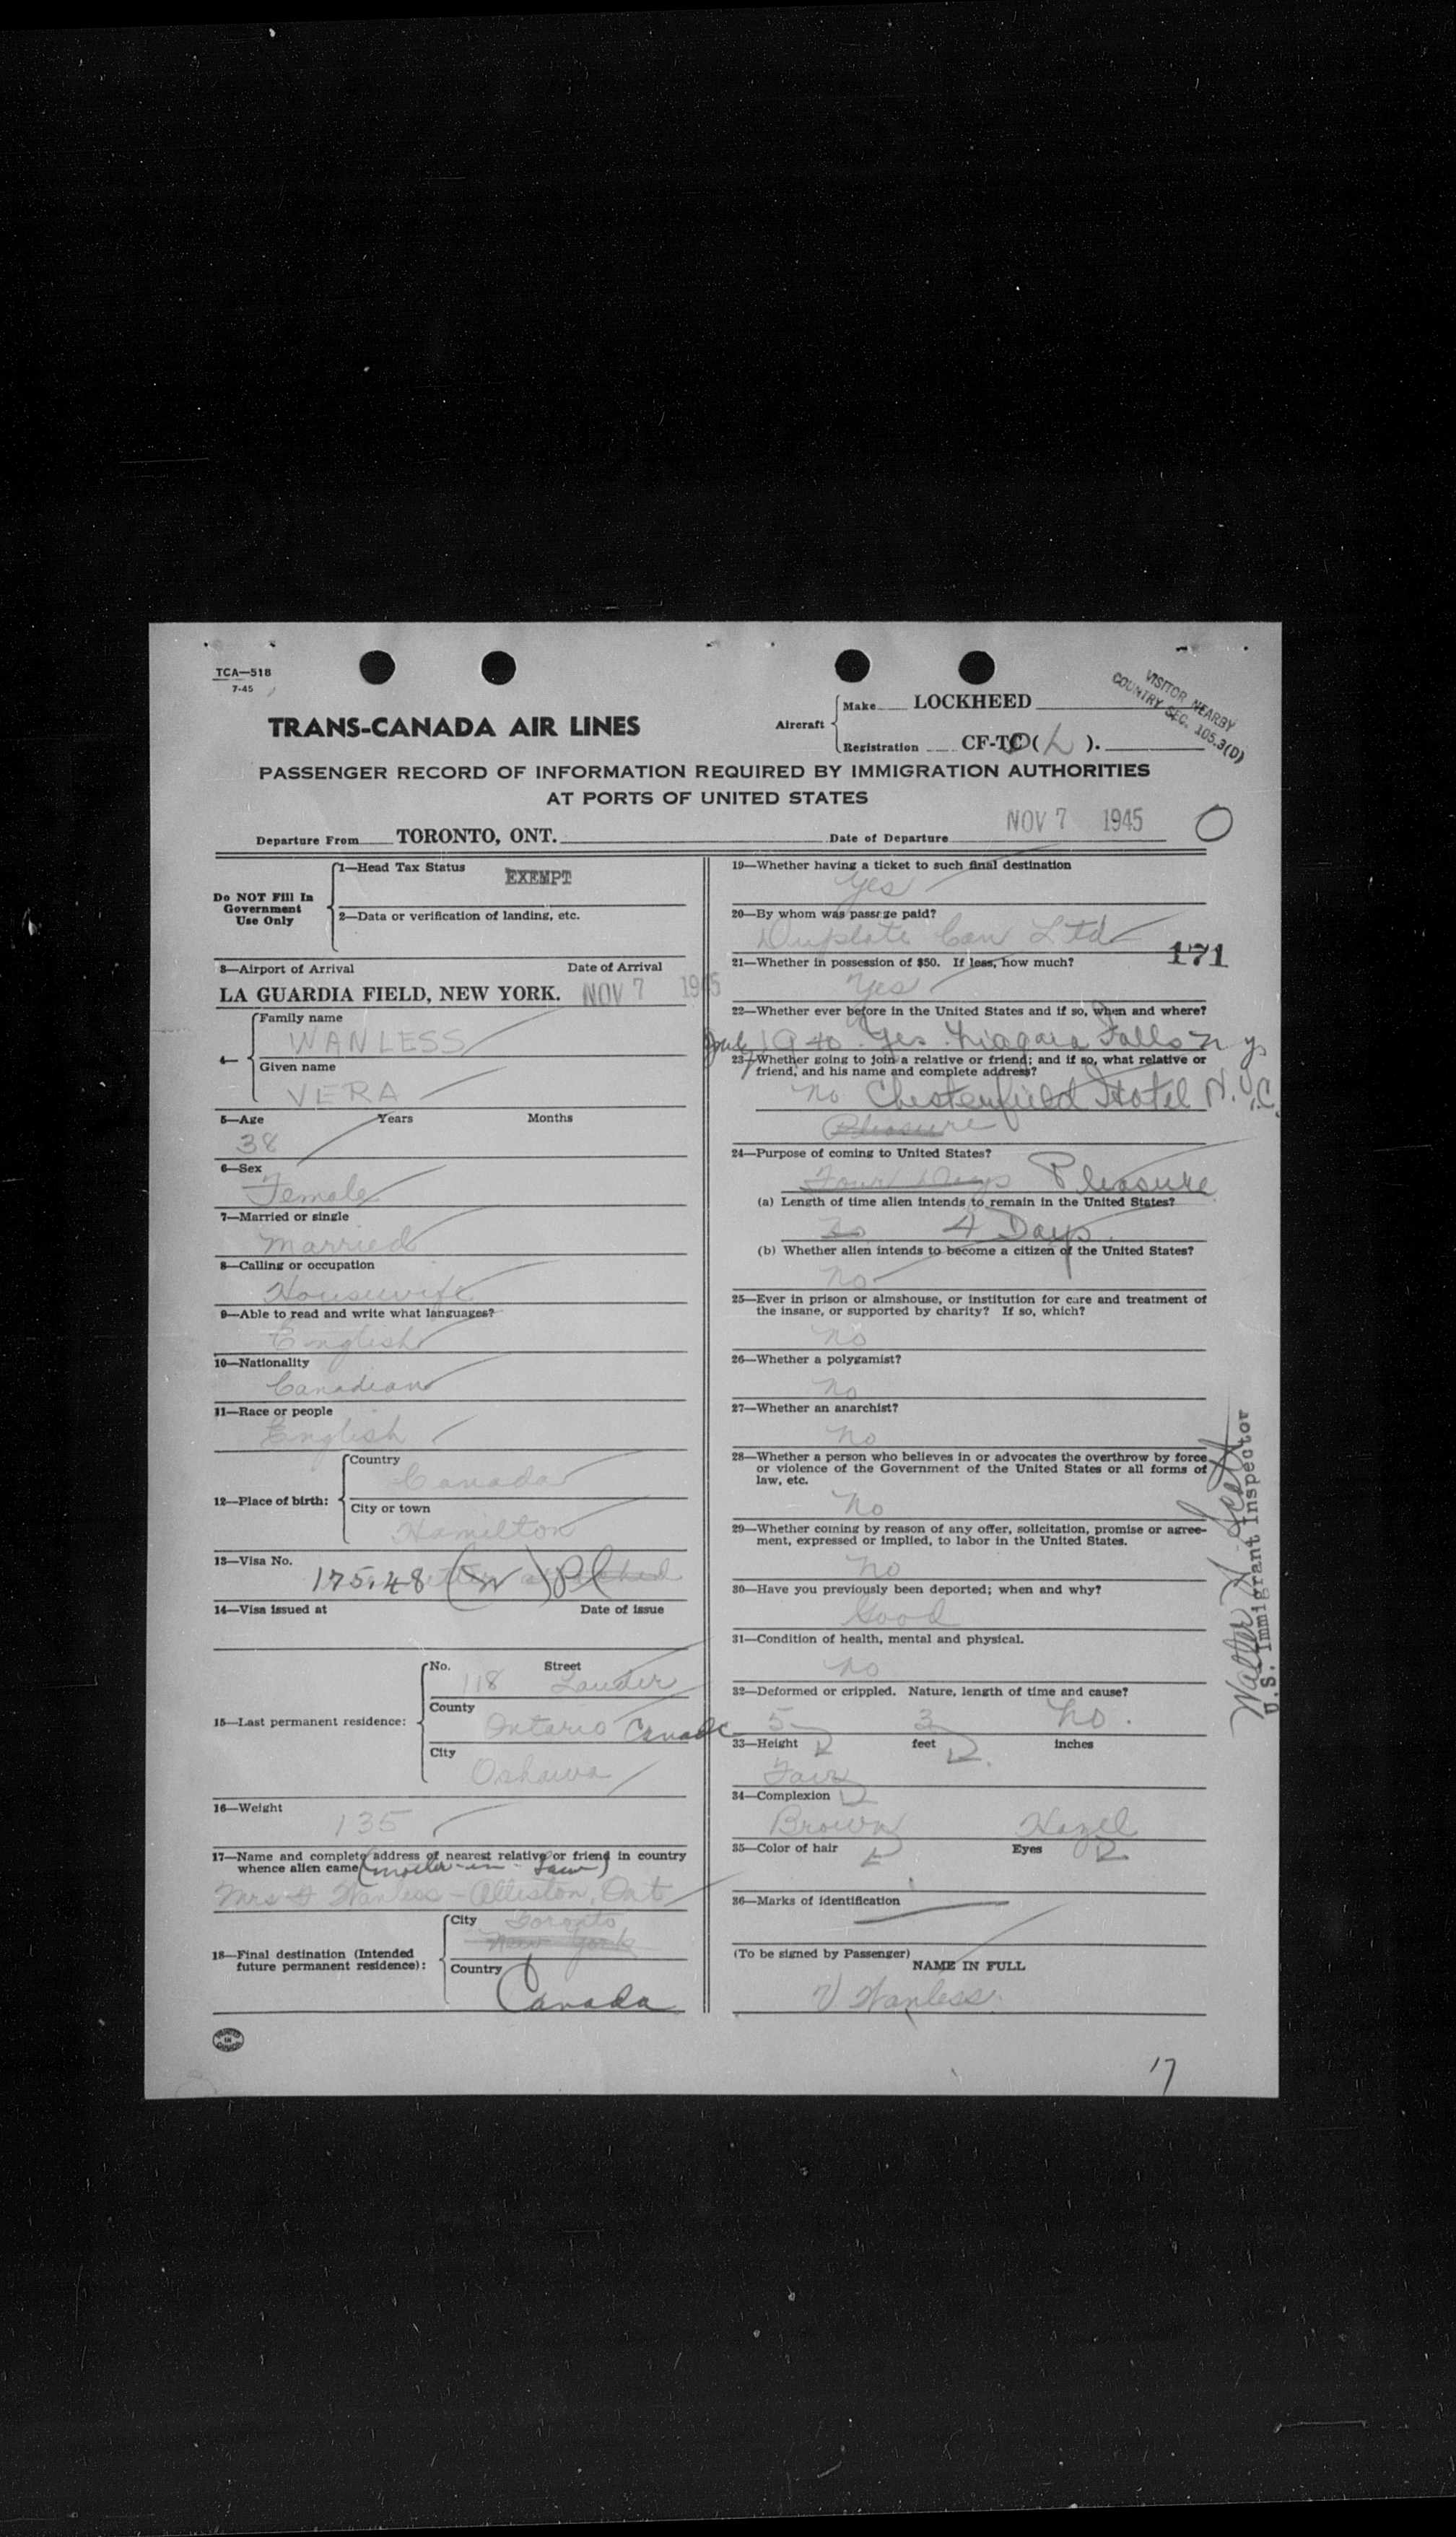 TCA—518
7-45
TRANS-CANADA AIR LINES
Aircraft
Make LOCKHEED
Registration CF-TC (L ).
VISITOR NEARBY
COUNTRY SEC. 105.3(D)
PASSENGER RECORD OF INFORMATION REQUIRED BY IMMIGRATION AUTHORITIES
AT PORTS OF UNITED STATES
Departure From TORONTO, ONT. Date of Departure NOV 7 1945
O
Do NOT Fill In
Government
Use Only
1—Head Tax Status EXEMPT
2—Data or verification of landing, etc.
3—Airport of Arrival Date of Arrival
LA GUARDIA FIELD, NEW YORK. NOV 7 1945
4—
Family name
WANLESS
Given name
VERA
5—Age Years Months
38
6—Sex
Female
7—Married or single
Married
8—Calling or occupation
Housewife
9—Able to read and write what languages?
English
10—Nationality
Canadian
11—Race or people
English
12—Place of birth:
Country
Canada
City or town
Hamilton
13—Visa No.
175.48
14—Visa issued at Date of issue
15—Last permanent residence:
No. Street
118 Lauder
County
Ontario Canada
City
Oshawa
16—Weight
135
17—Name and complete address of nearest relative or friend in country
whence alien came (mother-in-law)
Mrs Wanless - Alliston, Ont
18—Final destination (Intended
future permanent residence):
City Toronto
New York
Country
Canada
19—Whether having a ticket to such final destination
Yes
20—By whom was passage paid?
Duplate Can Ltd
171
21—Whether in possession of $50. If less, how much?
Yes
22—Whether ever before in the United States and if so, when and where?
1940 Yes Niagara Falls N Y
23—Whether going to join a relative or friend; and if so, what relative or
friend, and his name and complete address?
No Chesterfield Hotel N.Y.C.
Pleasure
24—Purpose of coming to United States?
Four Days Pleasure
(a) Length of time alien intends to remain in the United States?
4 Days
(b) Whether alien intends to become a citizen of the United States?
No
25—Ever in prison or almshouse, or institution for care and treatment of
the insane, or supported by charity? If so, which?
No
26—Whether a polygamist?
No
27—Whether an anarchist?
No
28—Whether a person who believes in or advocates the overthrow by force
or violence of the Government of the United States or all forms of
law, etc.
No
29—Whether coming by reason of any offer, solicitation, promise or agree-
ment, expressed or implied, to labor in the United States.
No
30—Have you previously been deported; when and why?
Good
31—Condition of health, mental and physical.
No
32—Deformed or crippled. Nature, length of time and cause?
5 3 No.
33—Height feet inches
Fair
34—Complexion
Brown Hazel
35—Color of hair Eyes
36—Marks of identification
(To be signed by Passenger)
NAME IN FULL
V Wanless
Walter Scott
U.S. Immigrant Inspector
PRINTED
IN
CANADA
17